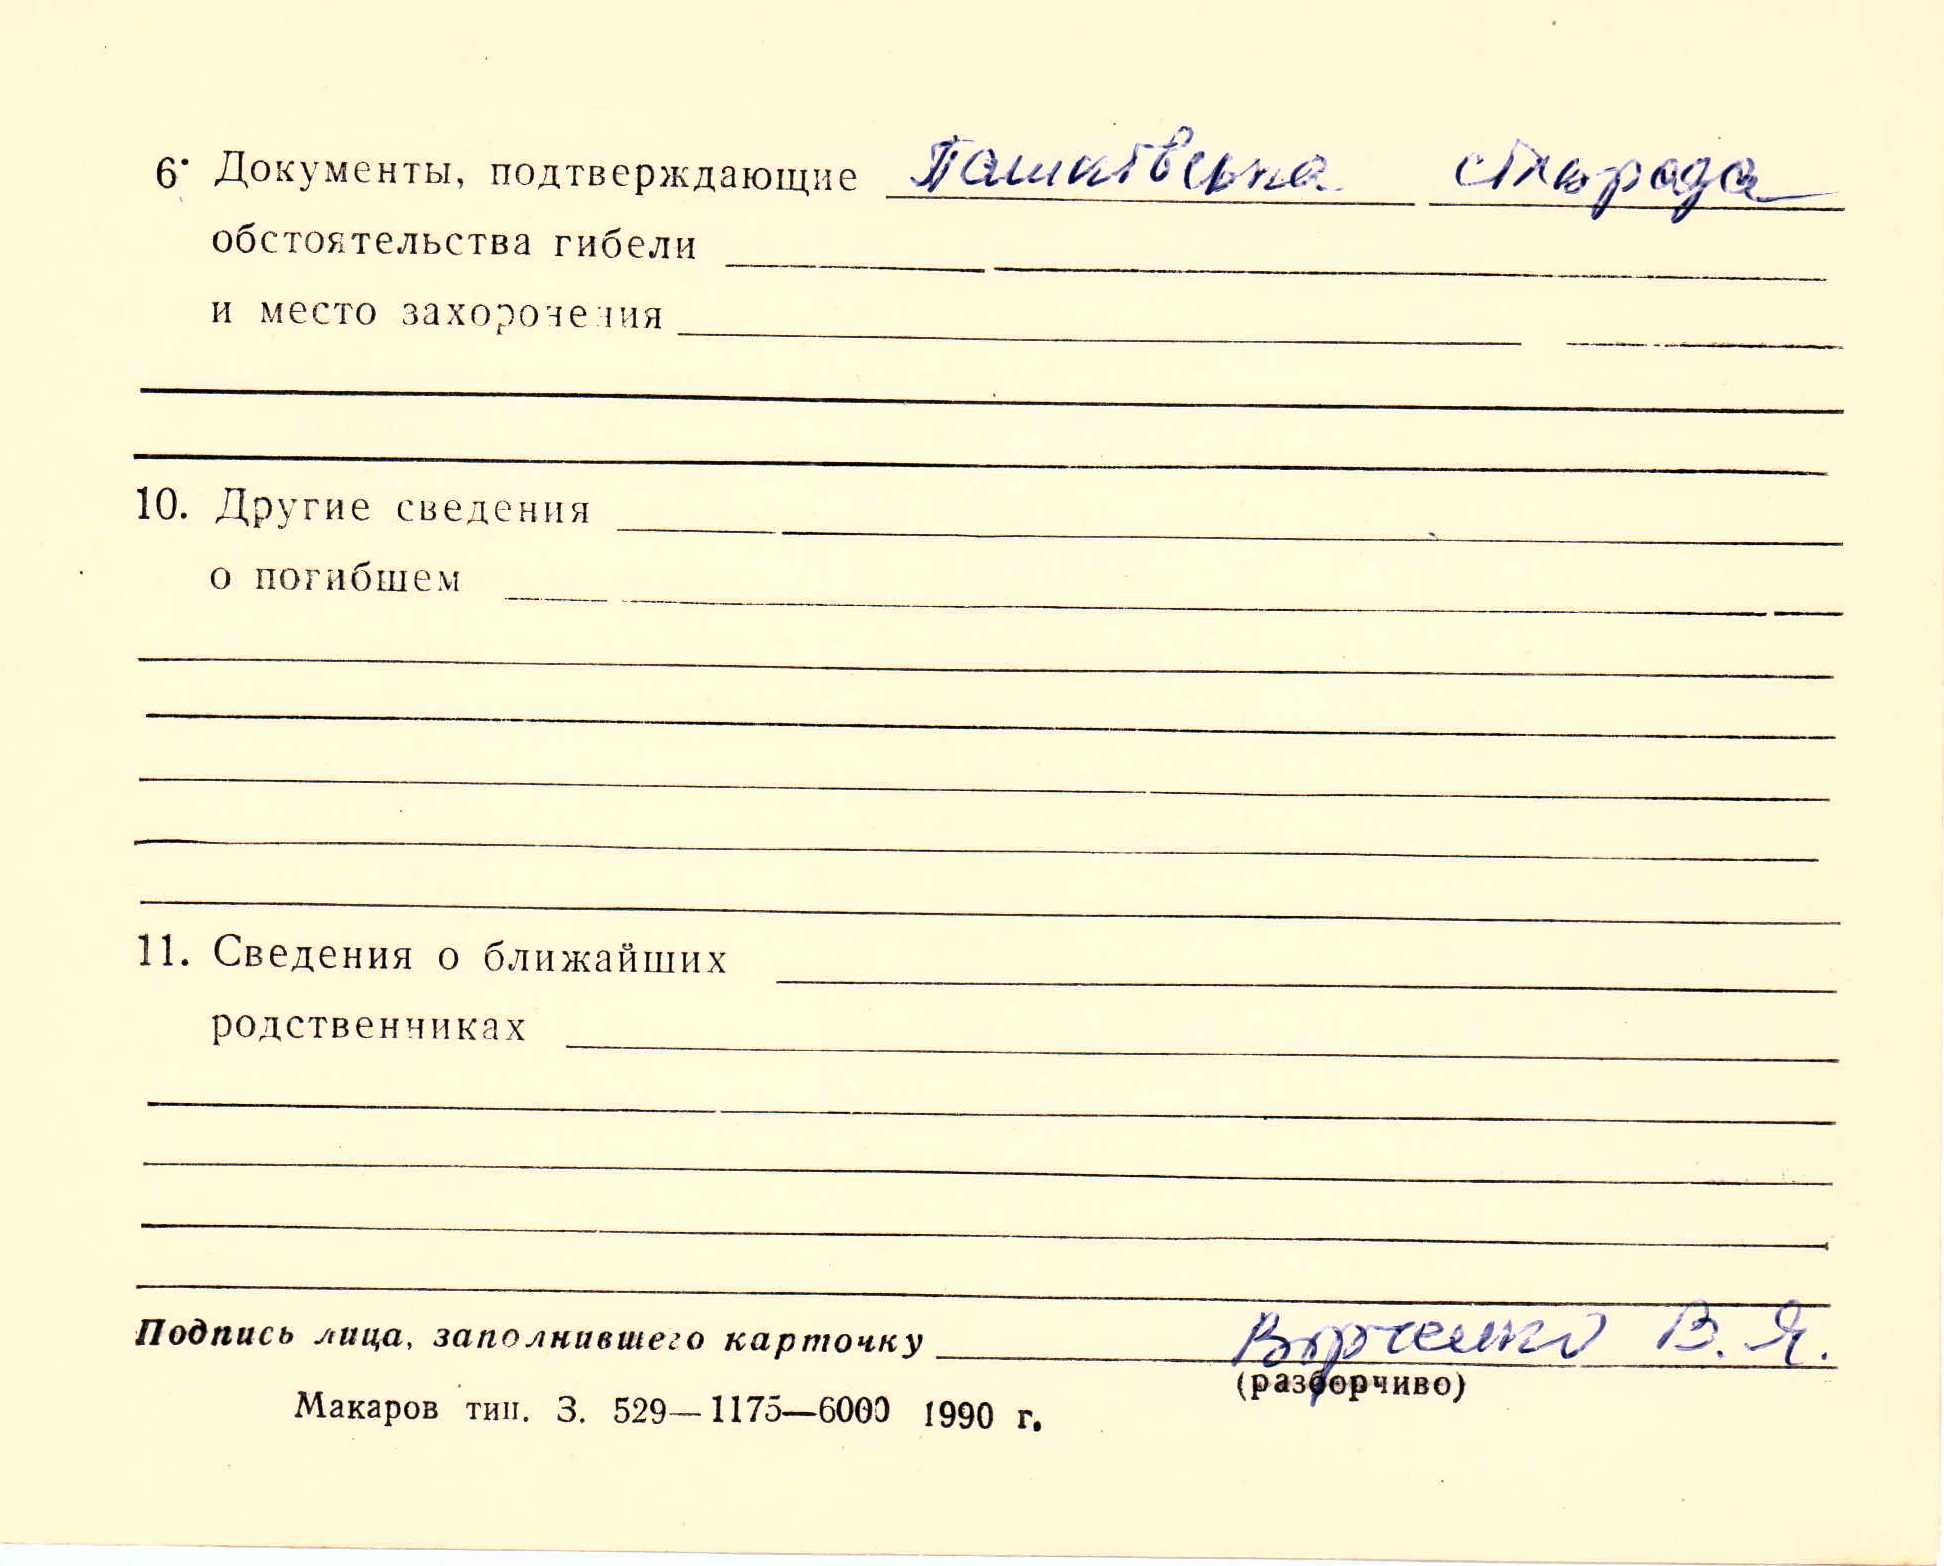 6. Документы, подтверждающие Пашківська сільрада
обстоятельства гибели
и место захоронения
10. Другие сведения
о погибшем
11. Сведения о ближайших
родственниках
Подпись лица, заполнившего карточку В. Я.
(разборчиво)
Макаров тип. З. 529—1175—6000 1990 г.